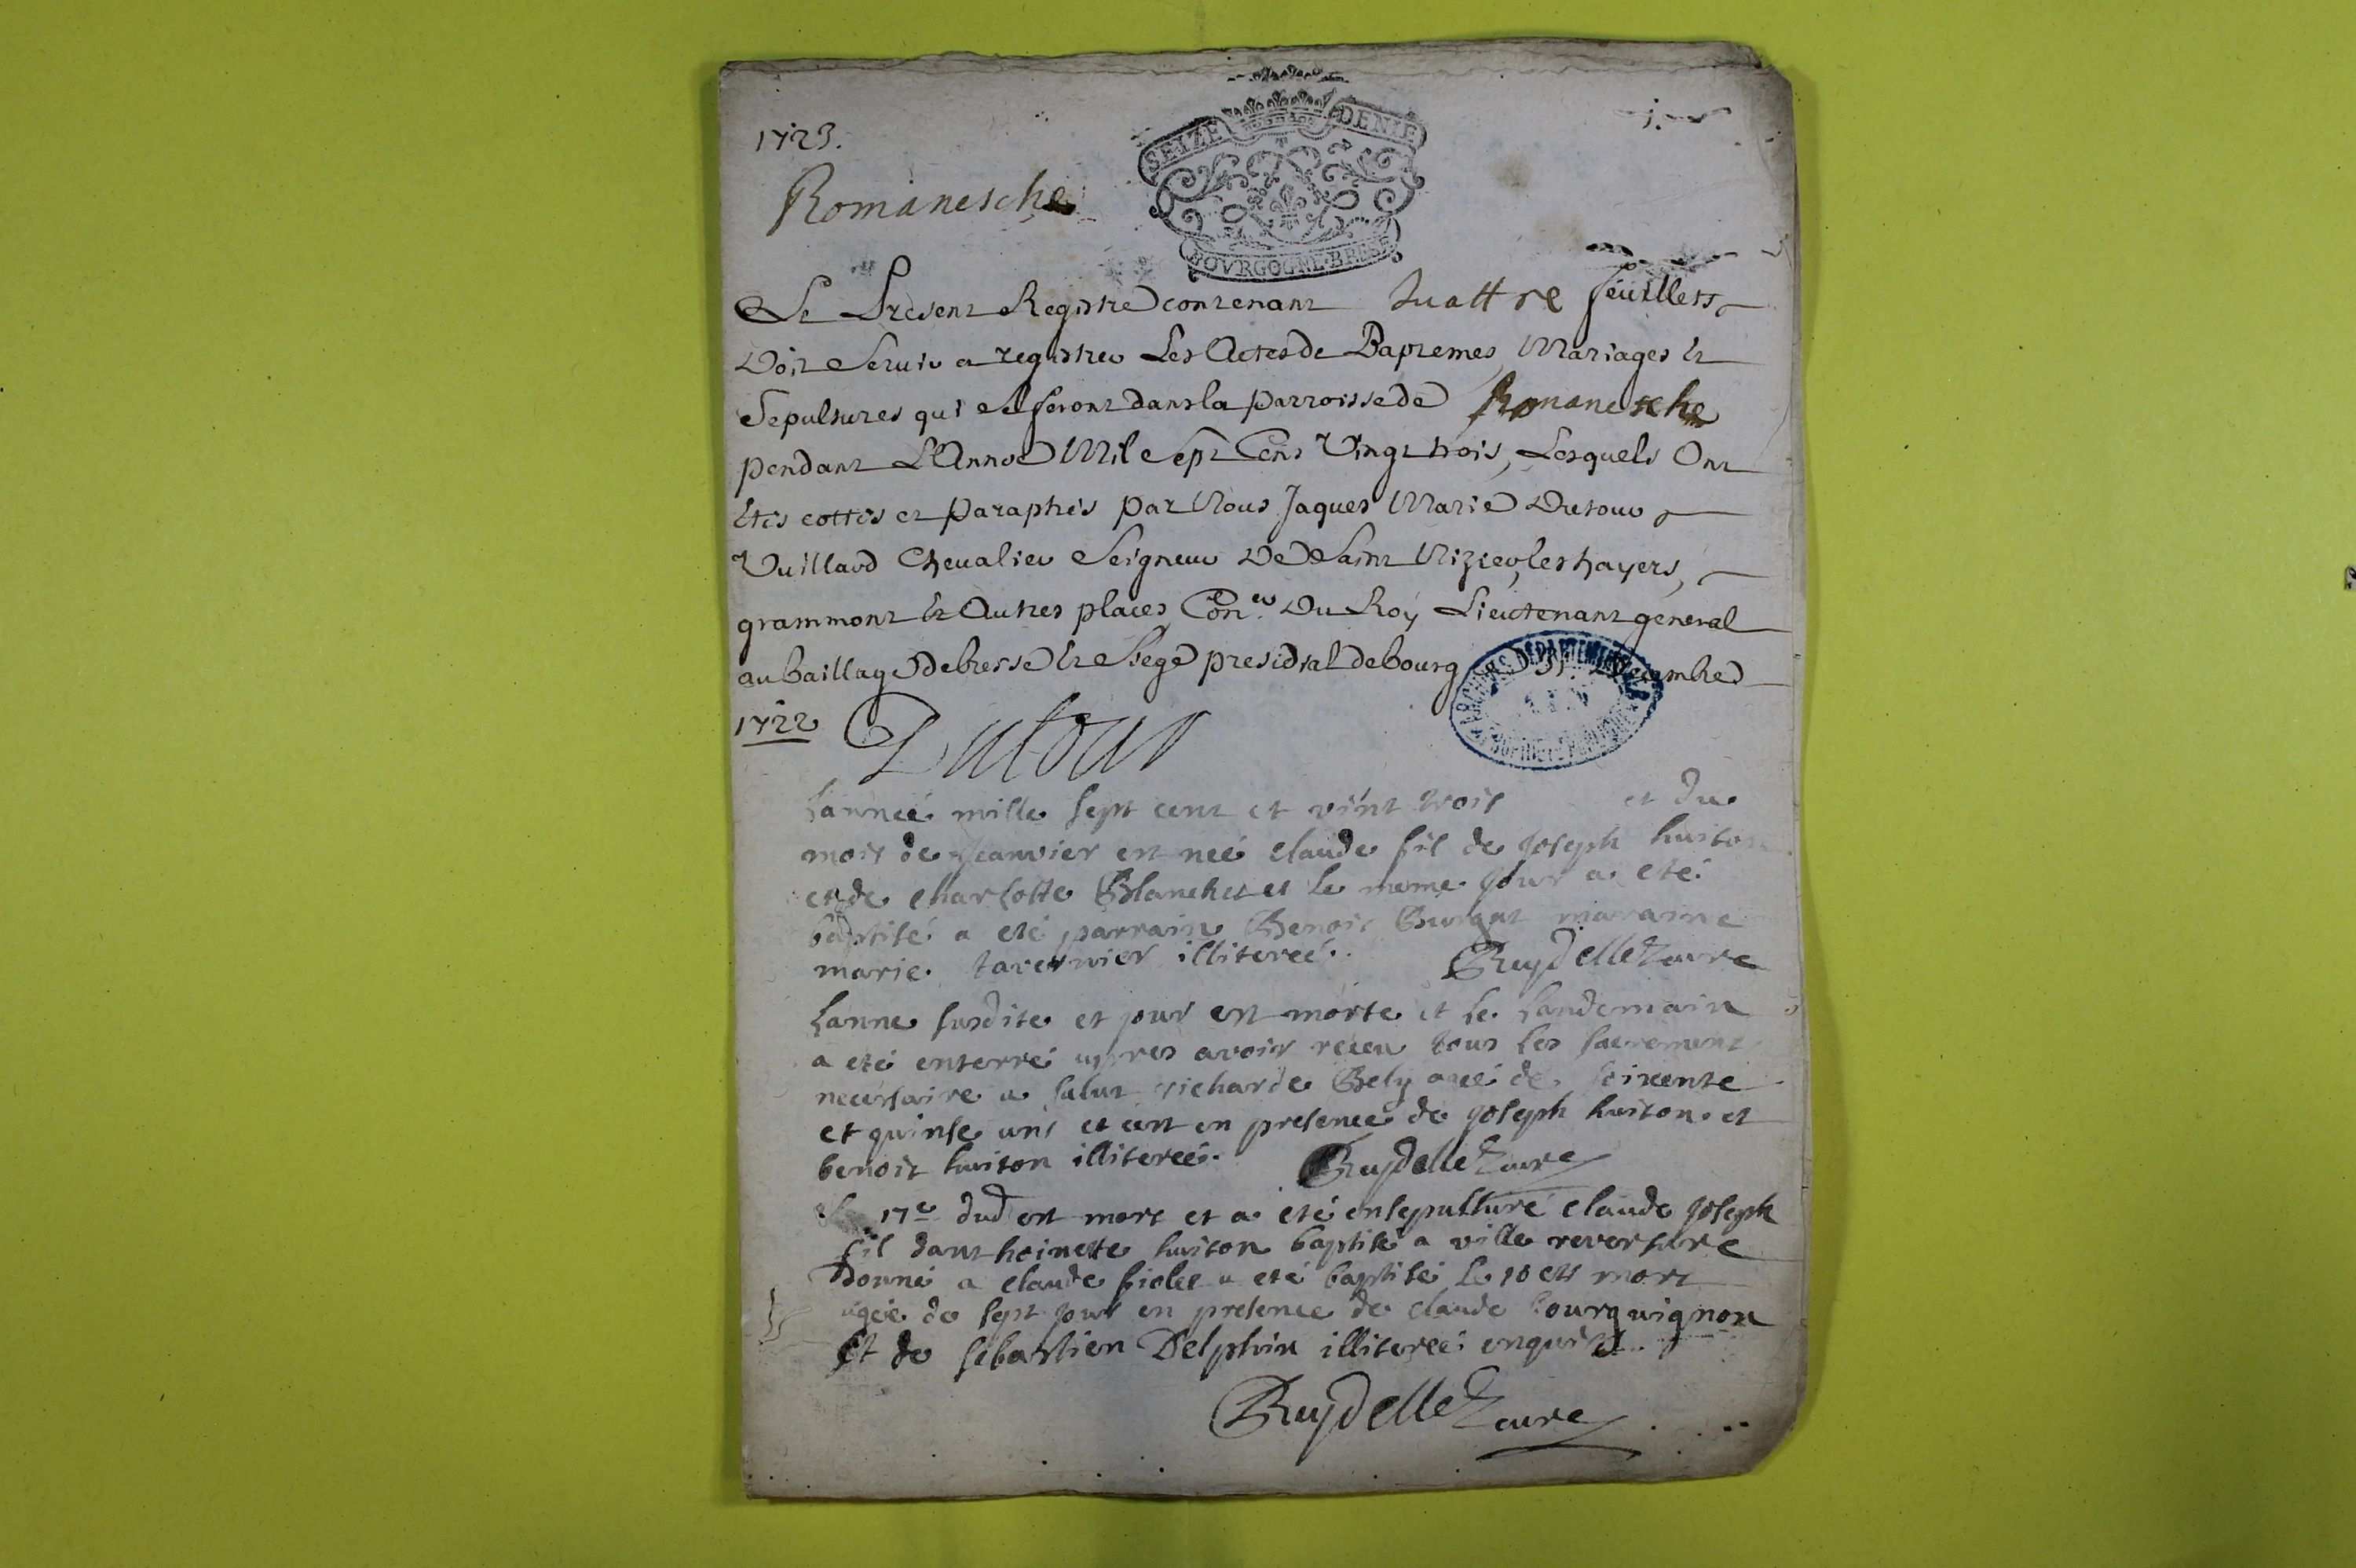 1723.
SEIZE DENIE
Romanesche
BOVRGOGNE BRESSE
Le Present Registre contenant quattre feuillets
Doit Servir a registrer Les Actes de Baptemes, Mariages et
Sepultures qui se feront dans la parroisse de Romanesche
pendant L'Année Mil sept Cens Vingt trois, Lesquels Ont
Etés cottés et paraphés par Nous Jaques Marie Dutour
Vuillard Chevalier Seigneur De Saint Nizier, les hayers,
grammont et Autres places, Con.er Du Roy Lieutenant general
au baillage de bresse et siege presidial de bourg ce 31. Decembre
1722 Dutour
ARCHIVES DEPARTEMENTALES
Lanneé mille sept cent et vint trois et du
mois de Jeanvier est neé claude fil de Joseph huiton
et de charlotte Blanchet et le meme Jour a eté
baptisé a eté parrain Benoit marraine
marie tavernier illitereé. cure
Lanne susdite et jour est morte et le landemain
a eté enterré apres avoir receu tous les sacrement
necessaire a salut richarde Bely ageé de soixente
et quinse ans et cert en presence de Joseph huiton et
benoit huiton illitereé. cure
Le 17e dud est mort et a eté ensepulturé claude Joseph
fil danthoinette huiton baptisé a ville reversure
Donné a claude fiolet a eté baptisé le 10 ets mort
ageé de sept jour en presence de claude bourguignon
Et de sebastien Delphin illitereé enquis
cure